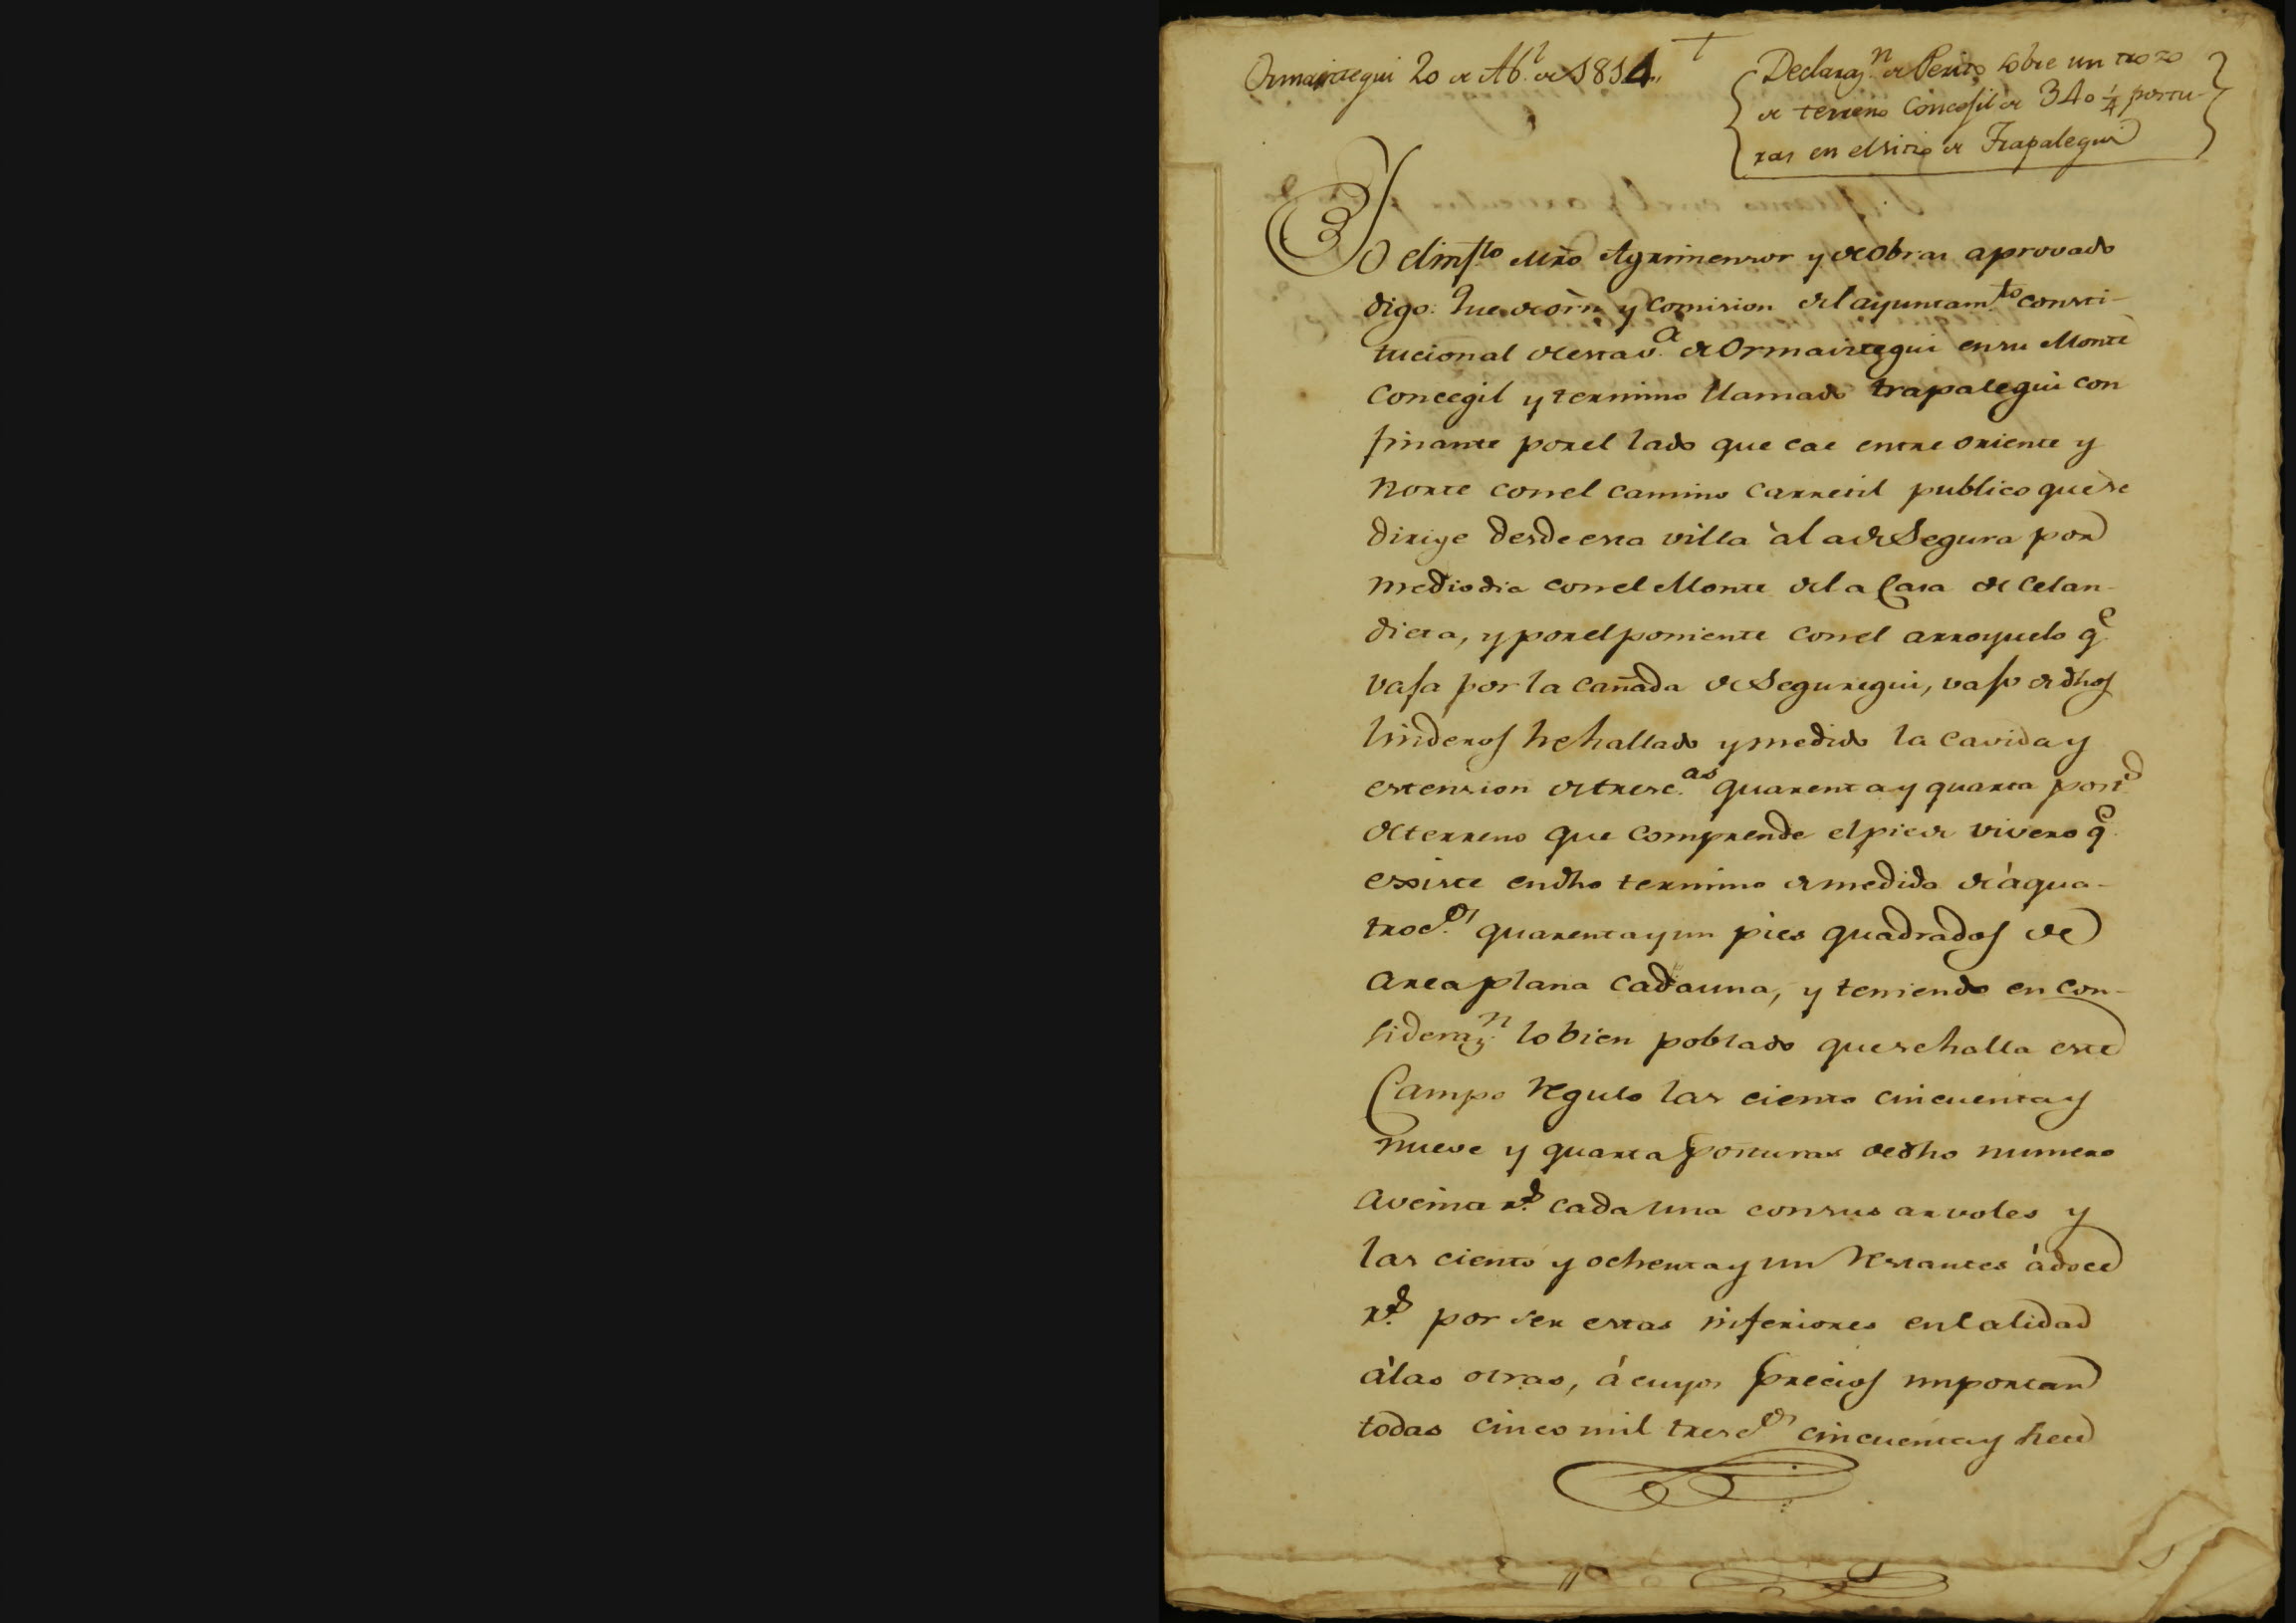 Ormaiztegui 20 de Ab.l de 1814,,
Declaraz.n de Perito sobre un trozo
de terreno Concejil de 340 1/4 postu-
ras en el sitio de Trapalegui
Yo el inf.to Mro Agrimensor y de Obras aprovado
digo: Que de orn y comision del ayuntam.to consti-
tucional de esta v.a de Ormaiztegui en su Monte
Concegil y termino llamado trapalegui con
finante por el lado que cae entre oriente y
Norte con el camino carretil publico que se
dirige desde esta villa à la de Segura por
mediodia con el Monte de la Casa de Celan-
dieta, y por el poniente con el arroyuelo q.e
vaja por la cañada de Seguregui, vajo de dhos
linderos he hallado y medido la cavida y
estension de tresc.as quarenta y quarta post.s
de terreno que comprende el pie de vivero q.e
existe en dho termino de medida de à qua-
troc.os quarenta y un pies quadrados de
area plana cada una, y teniendo en con-
sideraz.n lo bien poblado que se halla este
Campo regulo las ciento cincuenta y
nueve y quarta posturas de dho numero
a veinte r.s cada una con sus arvoles y
las ciento y ochenta y un restantes á doce
r.s por ser estas inferiores en calidad
à las otras, á cuyos precios importan
todas cinco mil tresc.os cincuenta y siete